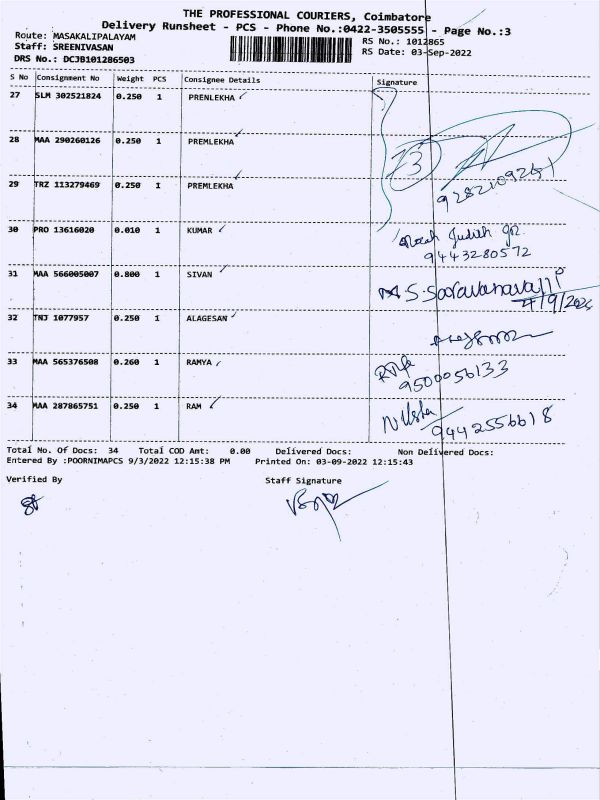 THE PROFESSIONAL COURIERS, Coimbatore
Delivery Runsheet - PCS - Phone No.:0422-3505555 - Page No.:3
Route: MASAKALIPALAYAM
RS No.: 1012865
Staff: SREENIVASAN
RS Date: 03-Sep-2022
DRS No.: DCJB101286503
S No Consignment No Weight PCS Consignee Details Signature
27 SLM 302521824 0.250 1 PRENLEKHA
28 MAA 290260126 0.250 1 PREMLEKHA
29 TRZ 113279469 0.250 1 PREMLEKHA
9282109261
30 PRO 13616020 0.010 1 KUMAR
Judith
9443280572
31 MAA 566005007 0.800 1 SIVAN
S. Saravanavalli
4/9/2022
32 TNJ 1077957 0.250 1 ALAGESAN
33 MAA 565376508 0.260 1 RAMYA
9500056133
34 MAA 287865751 0.250 1 RAM
N Usha
9442556618
Total No. Of Docs: 34 Total COD Amt: 0.00 Delivered Docs: Non Delivered Docs:
Entered By :POORNIMAPCS 9/3/2022 12:15:38 PM Printed On: 03-09-2022 12:15:43
Verified By Staff Signature